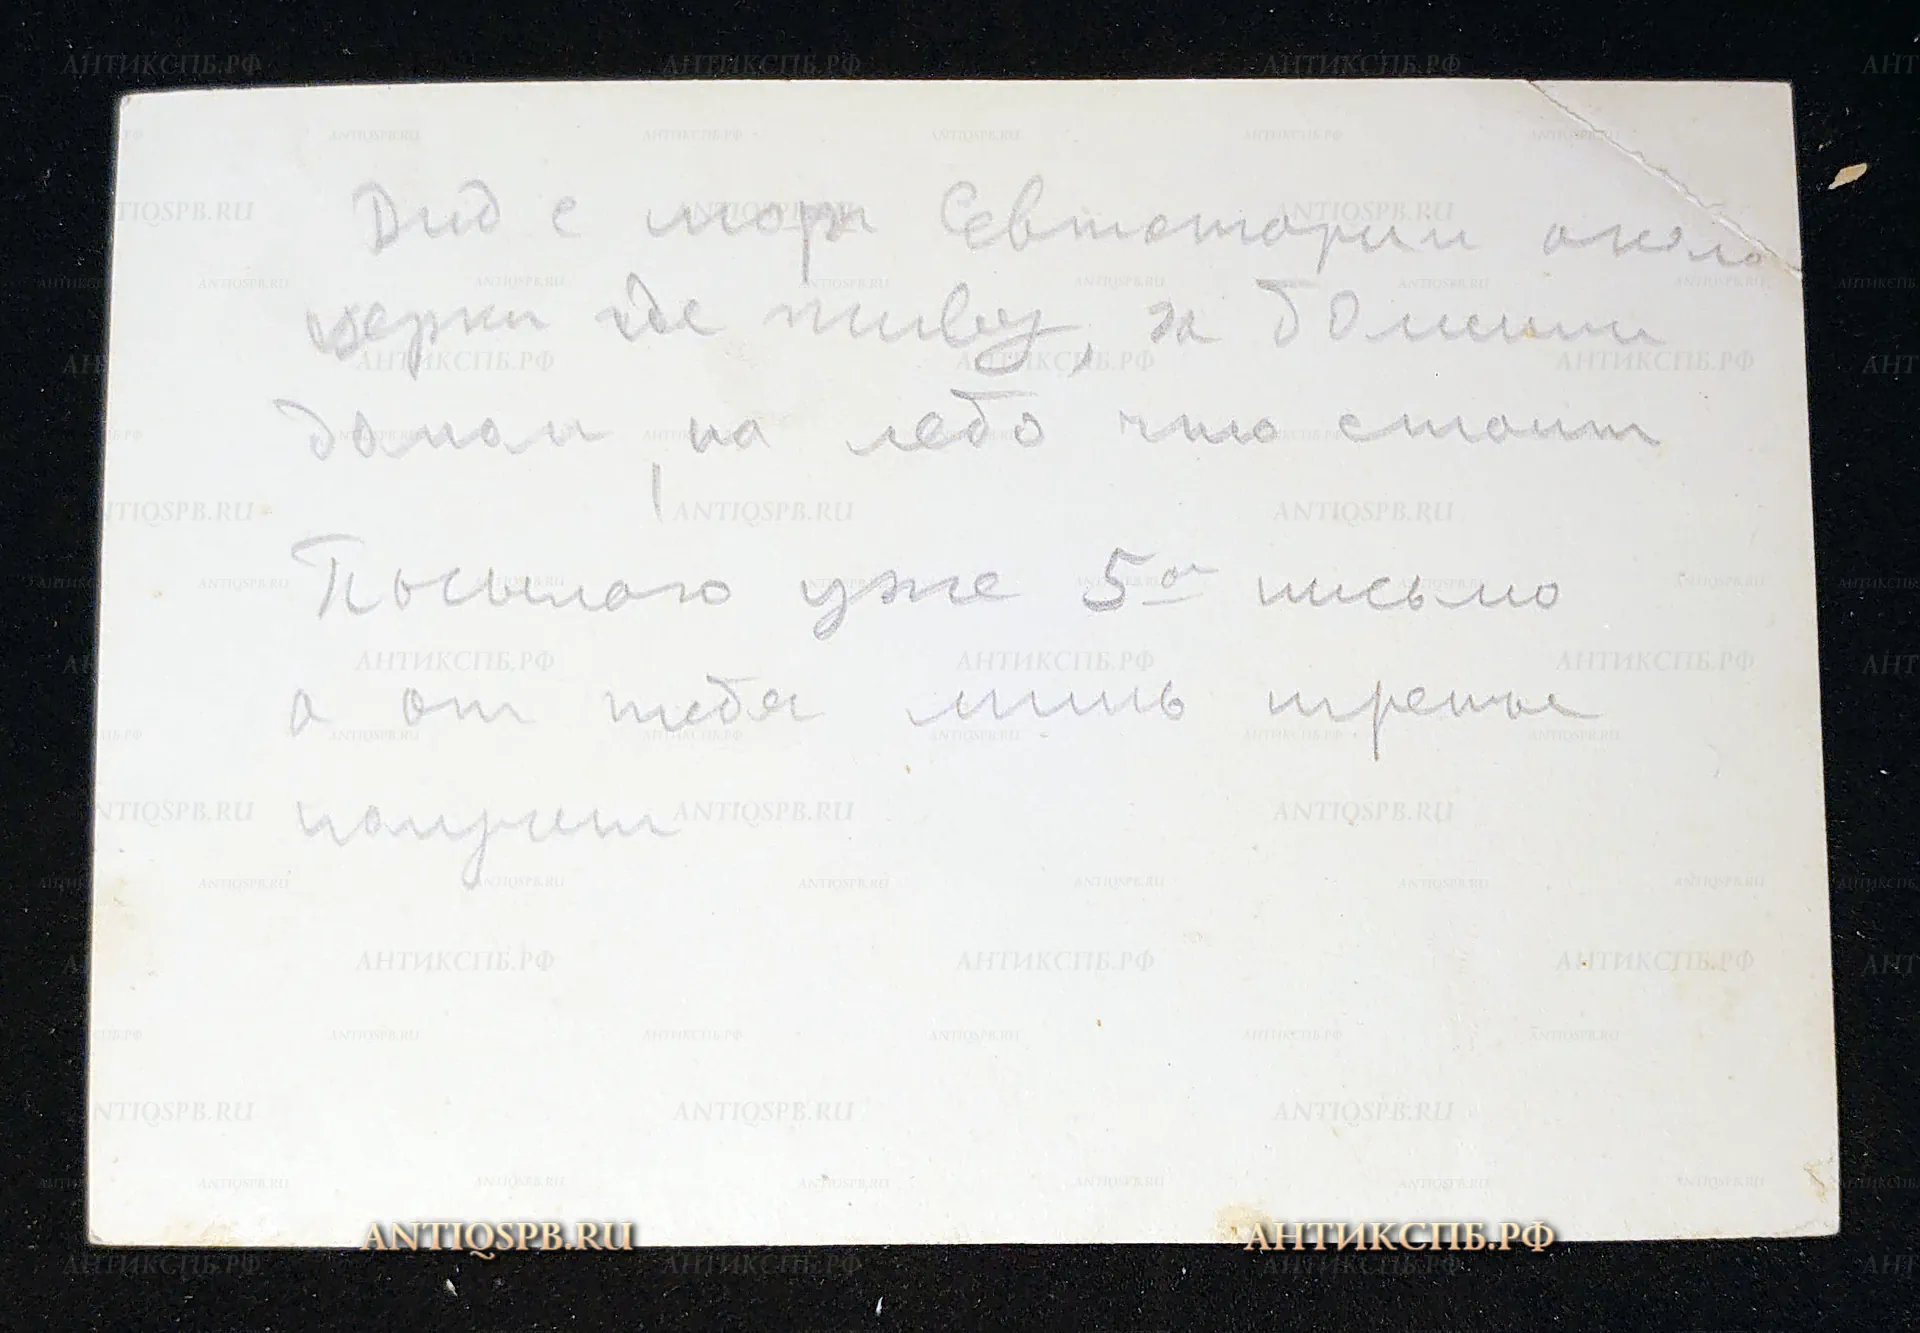 Вид с моря Севтотории около
церки где живу, за большим
домом, на лево что стоит
Посылаю уже 5ое письмо
а от тебя лишь третье
получит
ANTIQSPB.RU
АНТИКСПБ.РФ